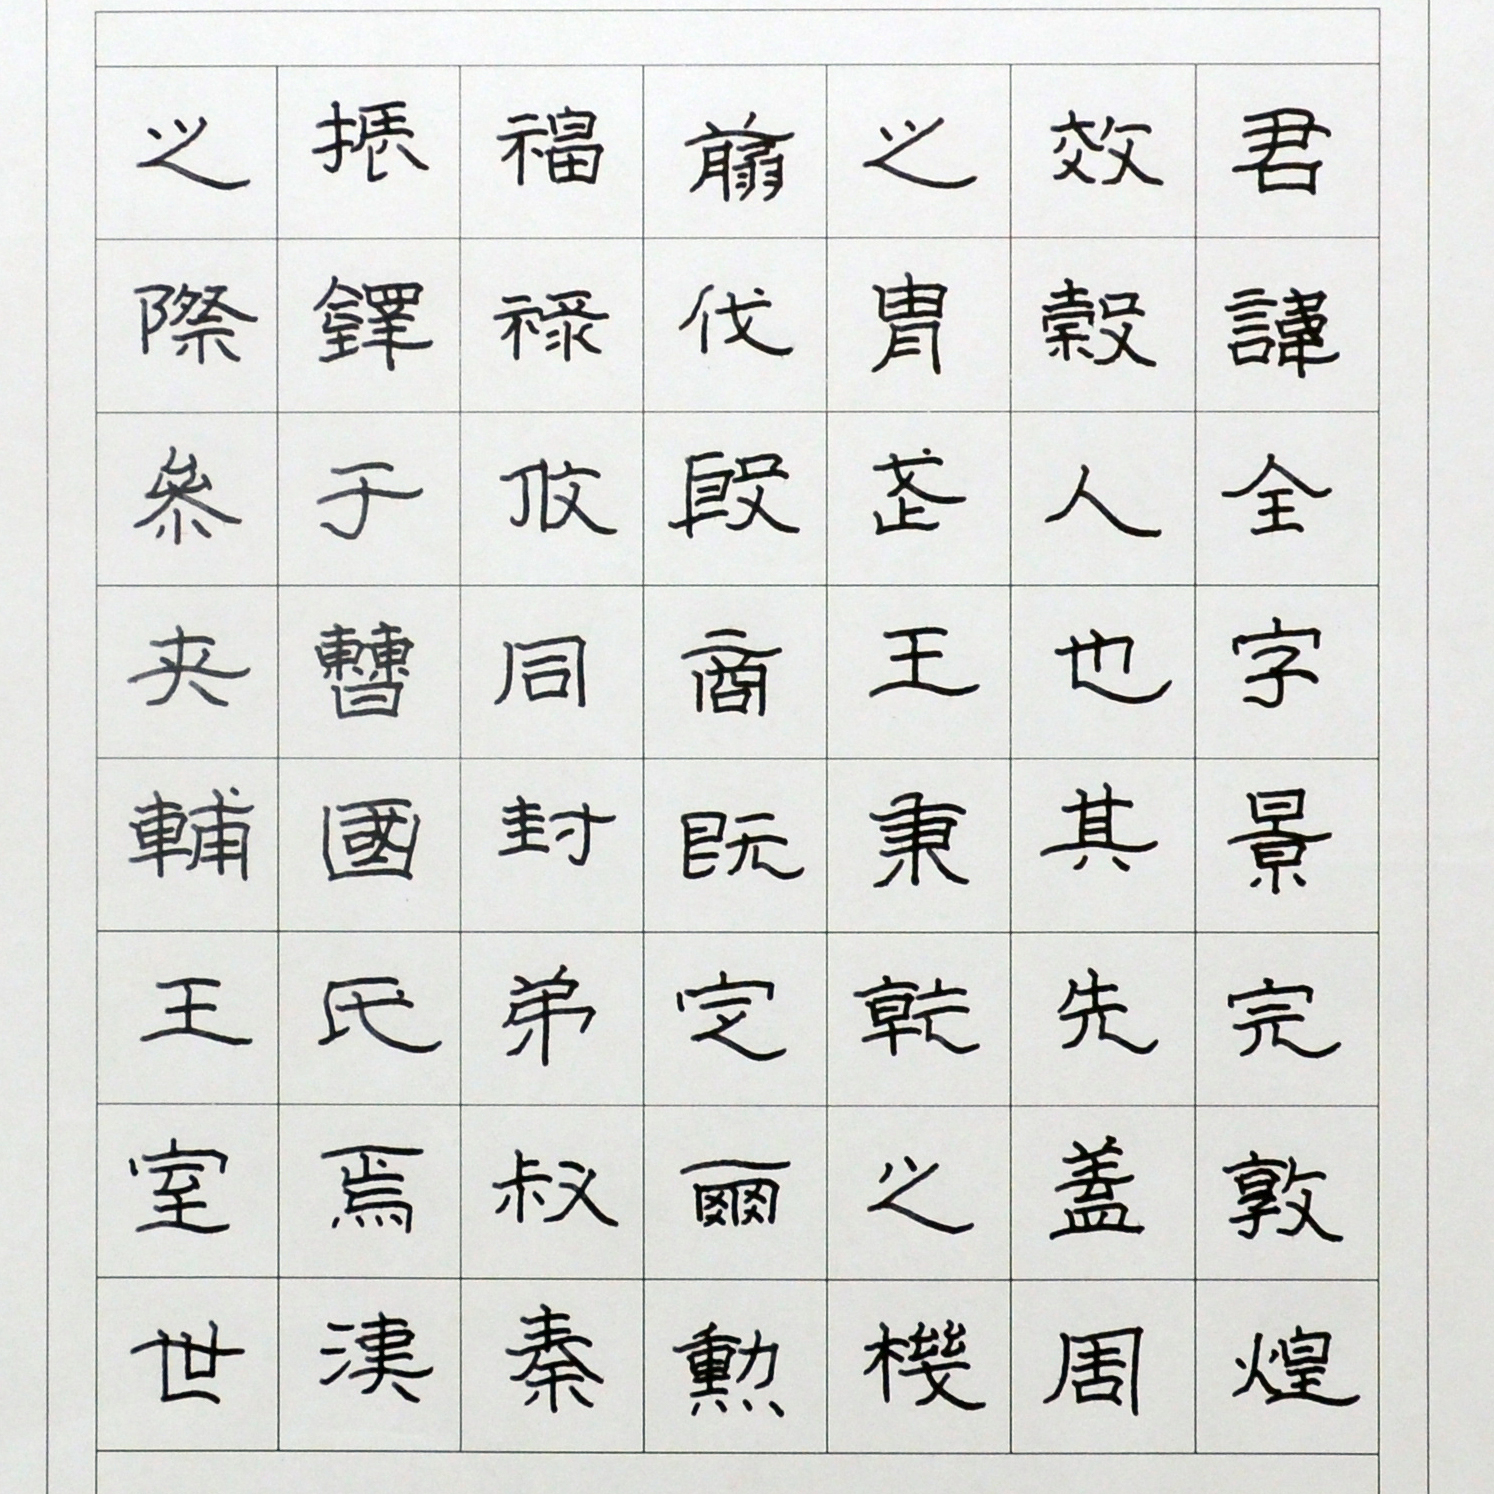 君諱全字景完敦煌
效穀人也其先蓋周
之胄武王秉乾之機
翦伐殷商既定爾勳
福祿攸同封弟叔秦
振鐸于曹國氏焉漢
之際參夾輔王室世